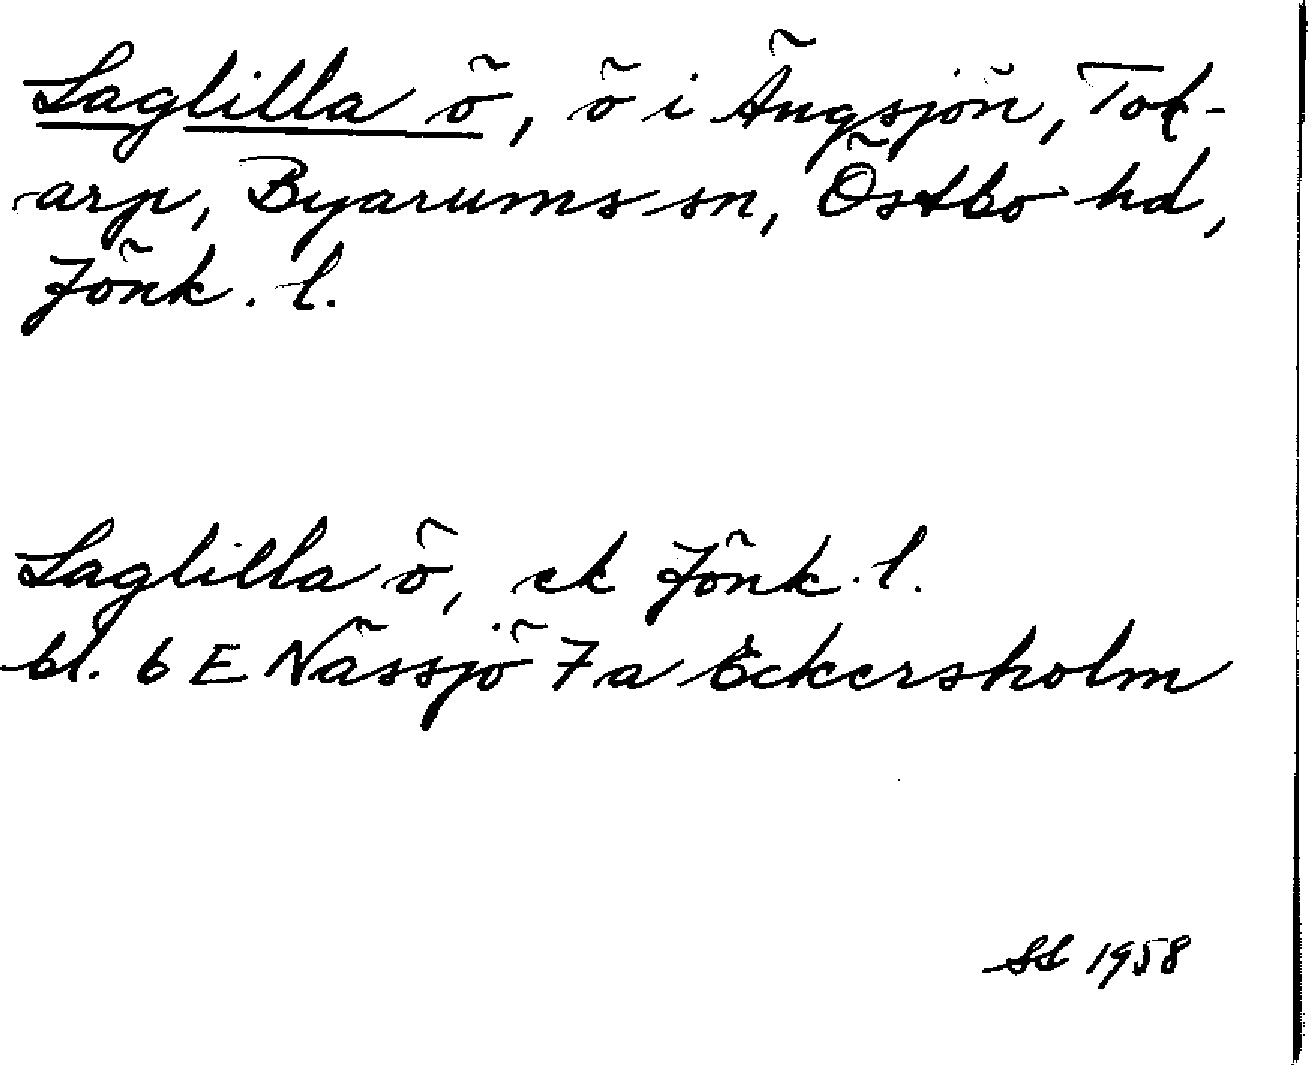 Laglilla ö, ö i Ängsjön, Tok-
arp, Byarums sn, Östbo hd,
Jönk. l.
Laglilla ö, ek Jönk. l.
bl. 6 E Nässjö 7 a Eckersholm
SL 1958